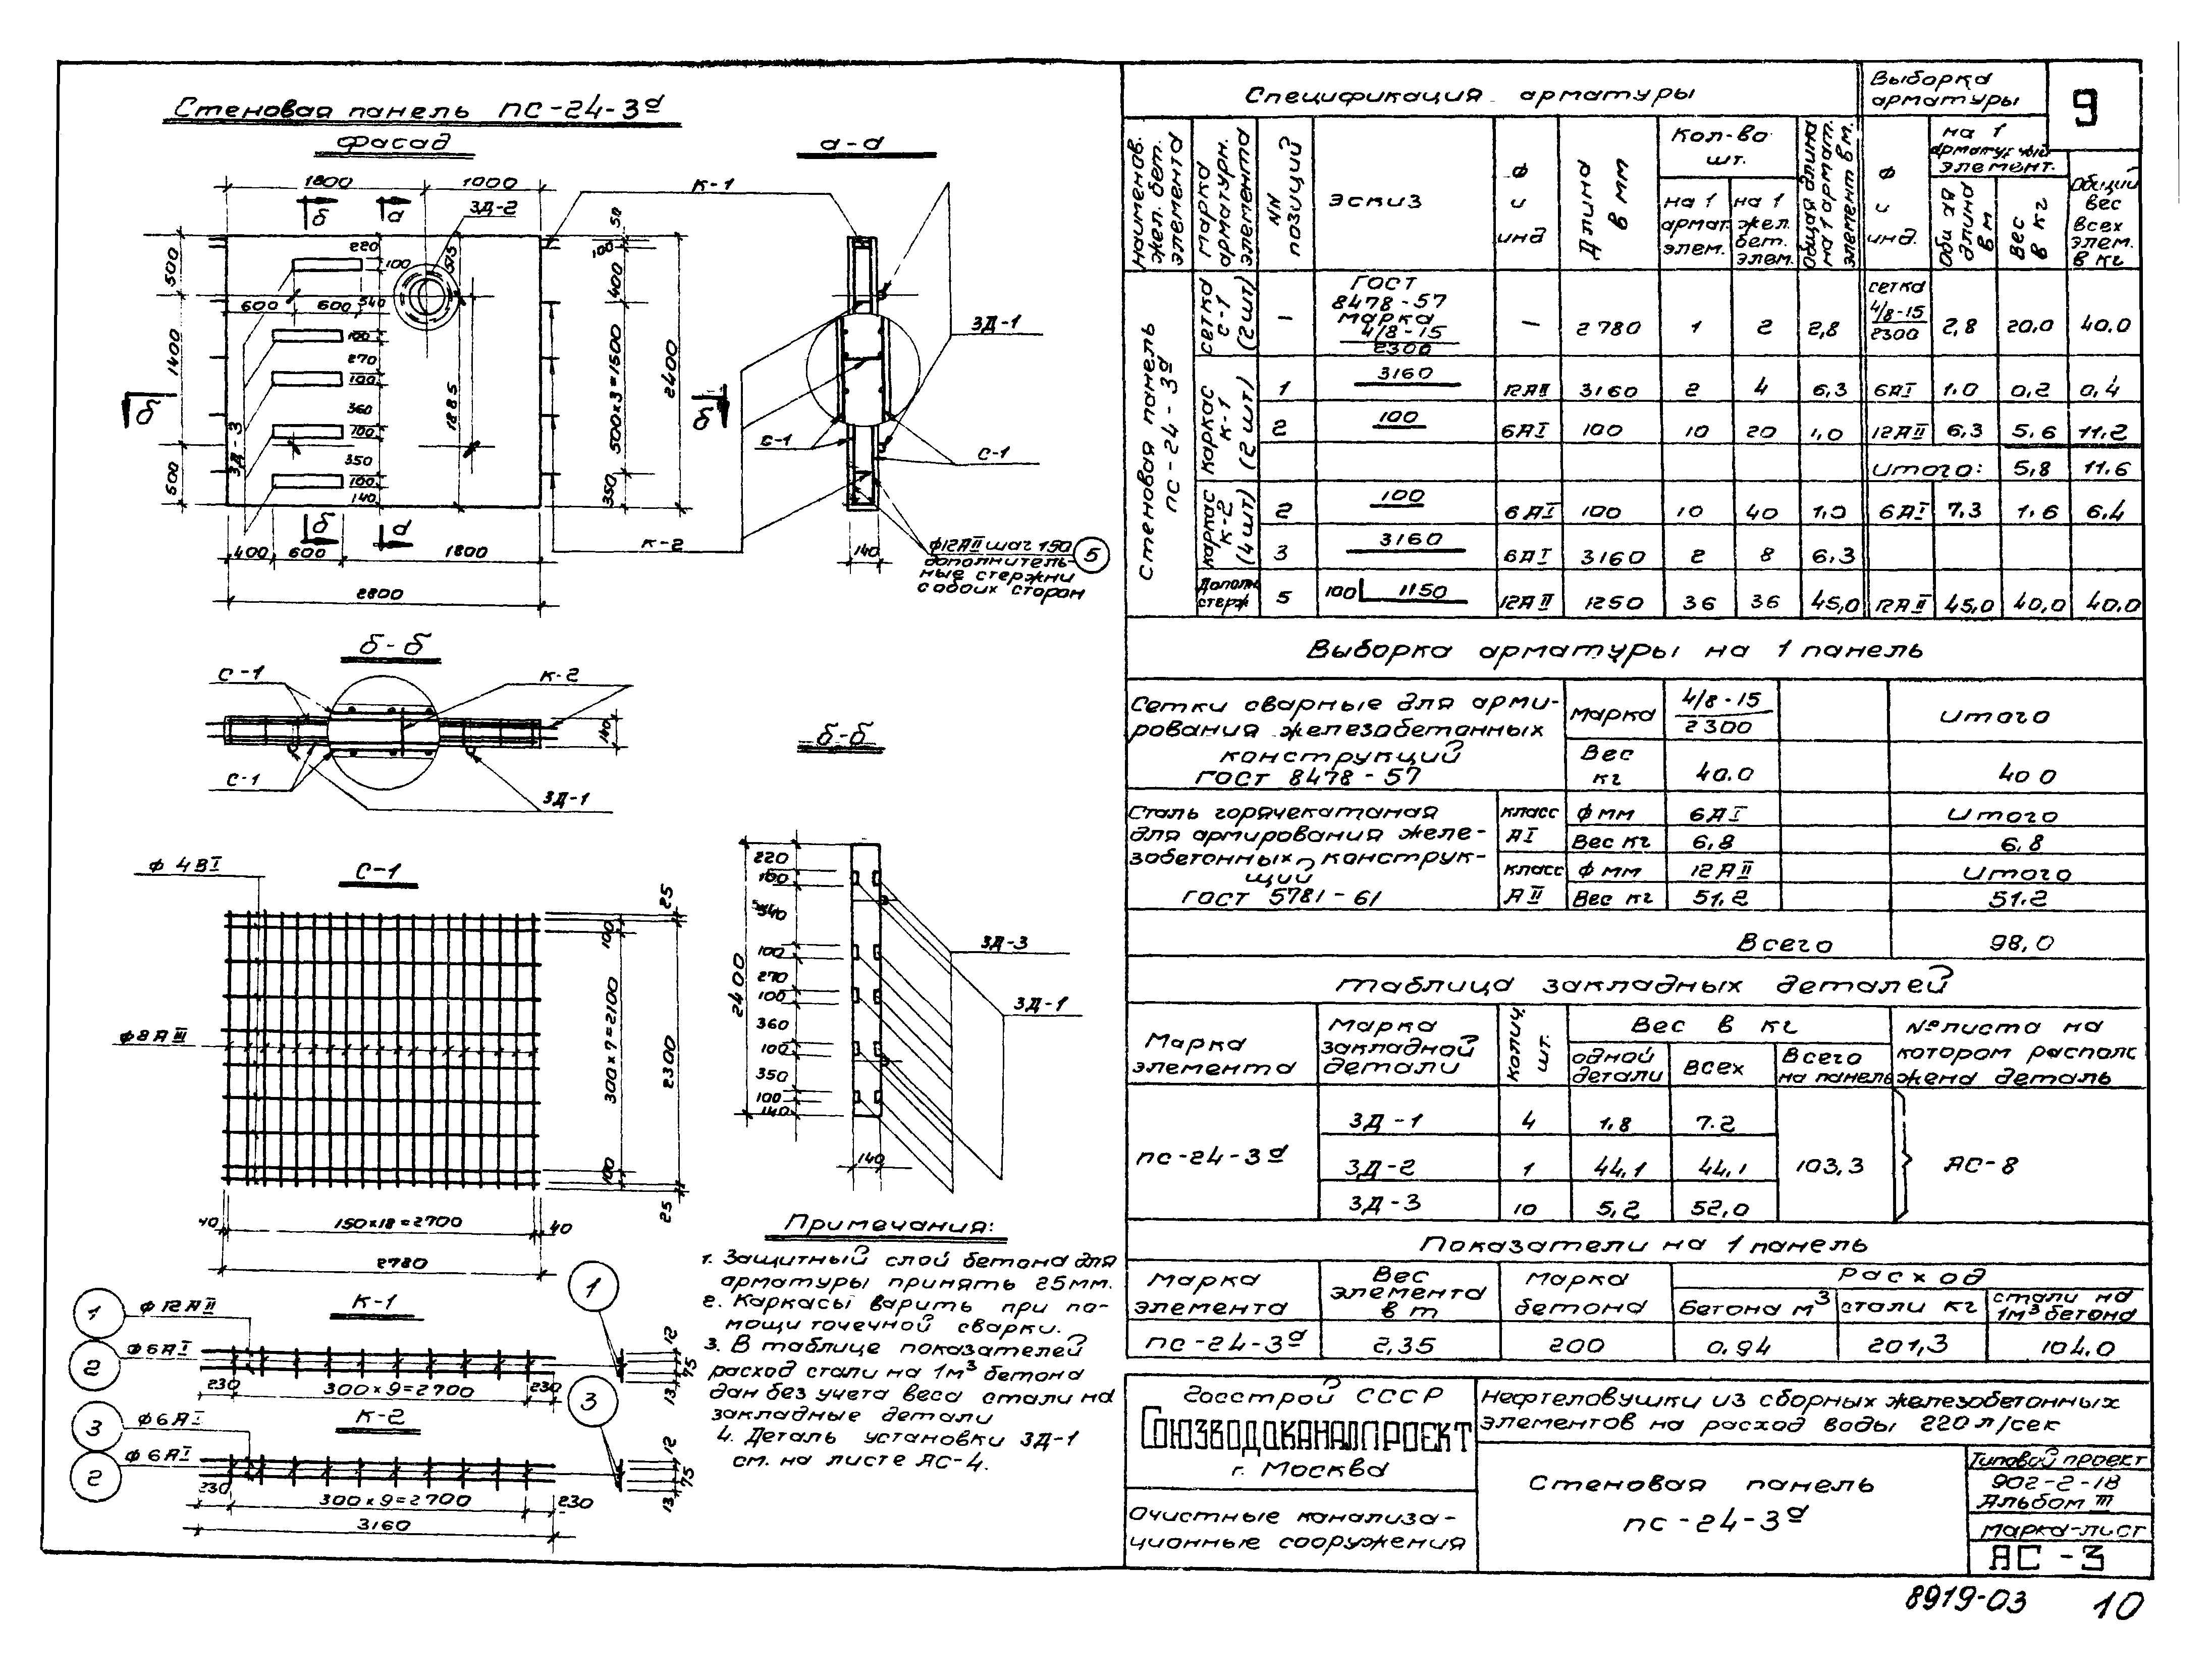 Стеновая панель ПС-24-3ª
Фасад
а-а
1800 1000
К-1
б а
ЗД-2
50
100
220
100
515
500
400
600 600 540
ЗД-1
100
270
1400
500х3=1500
2400
100
360
1885
б б
100
С-1
С-1
ЗД-3
350
500
100
140
350
б а
К-2
140
400 600 1800
2800
ф12АII шаг 150 5
дополнитель-
ные стержни
с обоих сторон
б-б
С-1 К-2
140
С-1
ЗД-1
б-б
ф 4ВI
С-1
25
100
ф8АIII
300х7=2100
2300
100
25
40 150х18=2700 40
2780
220
100
340
100
270
100
360
100
350
100
140
2400
ЗД-3
ЗД-1
140
1 ф12АII К-1 1
2 ф6АI
12
75
13
230 300х9=2700 230
3 ф6АI К-2 3
2 ф6АI
12
75
13
230 300х9=2700 230
3160
Примечания:
1. Защитный слой бетона для
арматуры принять 25мм.
2. Каркасы варить при по-
мощи точечной сварки.
3. В таблице показателей
расход стали на 1м³ бетона
дан без учета веса стали на
закладные детали
4. Деталь установки ЗД-1
см. на листе АС-4.
Спецификация арматуры
Выборка арматуры
9
Наименов. жел. бет. элемента
Марка арматурн. элемента
NN позиций
Эскиз
ф и инд
Длина в мм
Кол-во шт.
на 1 армат. элем.
на 1 жел. бет. элем.
Общая длина на 1 армат. элемент в м.
ф и инд.
на 1 арматурный элемент.
Общая длина в м
Вес в кг
Общий вес всех элем. в кг
Стеновая панель ПС-24-3ª
Сетка С-1 (2 шт) — ГОСТ 8478-57 Марка 4/8-15 2300 — 2780 1 2 2,8 сетка 4/8-15 2300 2,8 20,0 40.0
Каркас К-1 (2 шт) 1 3160 12АII 3160 2 4 6,3 6АI 1.0 0,2 0,4
2 100 6АI 100 10 20 1,0 12АII 6,3 5,6 11,2
Итого: 5,8 11.6
Каркас К-2 (4 шт) 2 100 6АI 100 10 40 1,0 6АI 7,3 1,6 6,4
3 3160 6АI 3160 2 8 6,3
Дополн стерж 5 100 1150 12АII 1250 36 36 45,0 12АII 45,0 40,0 40.0
Выборка арматуры на 1 панель
Сетки сварные для арми-
рования железобетонных
конструкций
ГОСТ 8478-57
Марка 4/8-15 2300 Итого
Вес кг 40.0 40 0
Сталь горячекатаная
для армирования желе-
зобетонных конструк-
ций
ГОСТ 5781-61
класс АI ф мм 6АI Итого
Вес кг 6,8 6,8
класс АII ф мм 12АII Итого
Вес кг 51,2 51.2
Всего 98,0
Таблица закладных деталей
Марка элемента
Марка закладной детали
Колич. шт.
Вес в кг
одной детали
Всех
Всего на панель
№ листа на
котором распола
жена деталь
ПС-24-3ª
ЗД-1 4 1,8 7.2
ЗД-2 1 44,1 44,1 103,3 АС-8
ЗД-3 10 5,2 52,0
Показатели на 1 панель
Марка элемента
Вес элемента в т
Марка бетона
Расход
бетона м³ стали кг стали на 1м³ бетона
ПС-24-3ª 2,35 200 0,94 201,3 104.0
Госстрой СССР
СОЮЗВОДОКАНАЛПРОЕКТ
г. Москва
Очистные канализа-
ционные сооружения
Нефтеловушки из сборных железобетонных
элементов на расход воды 220л/сек
Стеновая панель
ПС-24-3ª
Типовой проект
902-2-18
Альбом III
Марка-лист
АС-3
8919-03 10